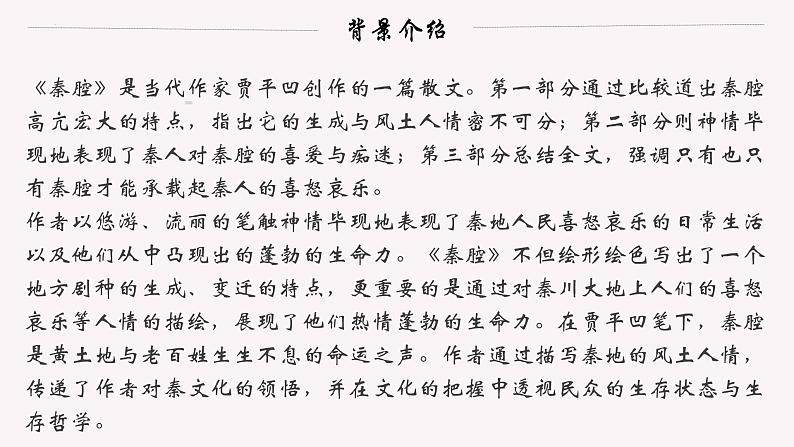 背景介绍
《秦腔》是当代作家贾平凹创作的一篇散文。第一部分通过比较道出秦腔
高亢宏大的特点，指出它的生成与风土人情密不可分；第二部分则神情毕
现地表现了秦人对秦腔的喜爱与痴迷；第三部分总结全文，强调只有也只
有秦腔才能承载起秦人的喜怒哀乐。
作者以悠游、流丽的笔触神情毕现地表现了秦地人民喜怒哀乐的日常生活
以及他们从中凸现出的蓬勃的生命力。《秦腔》不但绘形绘色写出了一个
地方剧种的生成、变迁的特点，更重要的是通过对秦川大地上人们的喜怒
哀乐等人情的描绘，展现了他们热情蓬勃的生命力。在贾平凹笔下，秦腔
是黄土地与老百姓生生不息的命运之声。作者通过描写秦地的风土人情，
传递了作者对秦文化的领悟，并在文化的把握中透视民众的生存状态与生
存哲学。